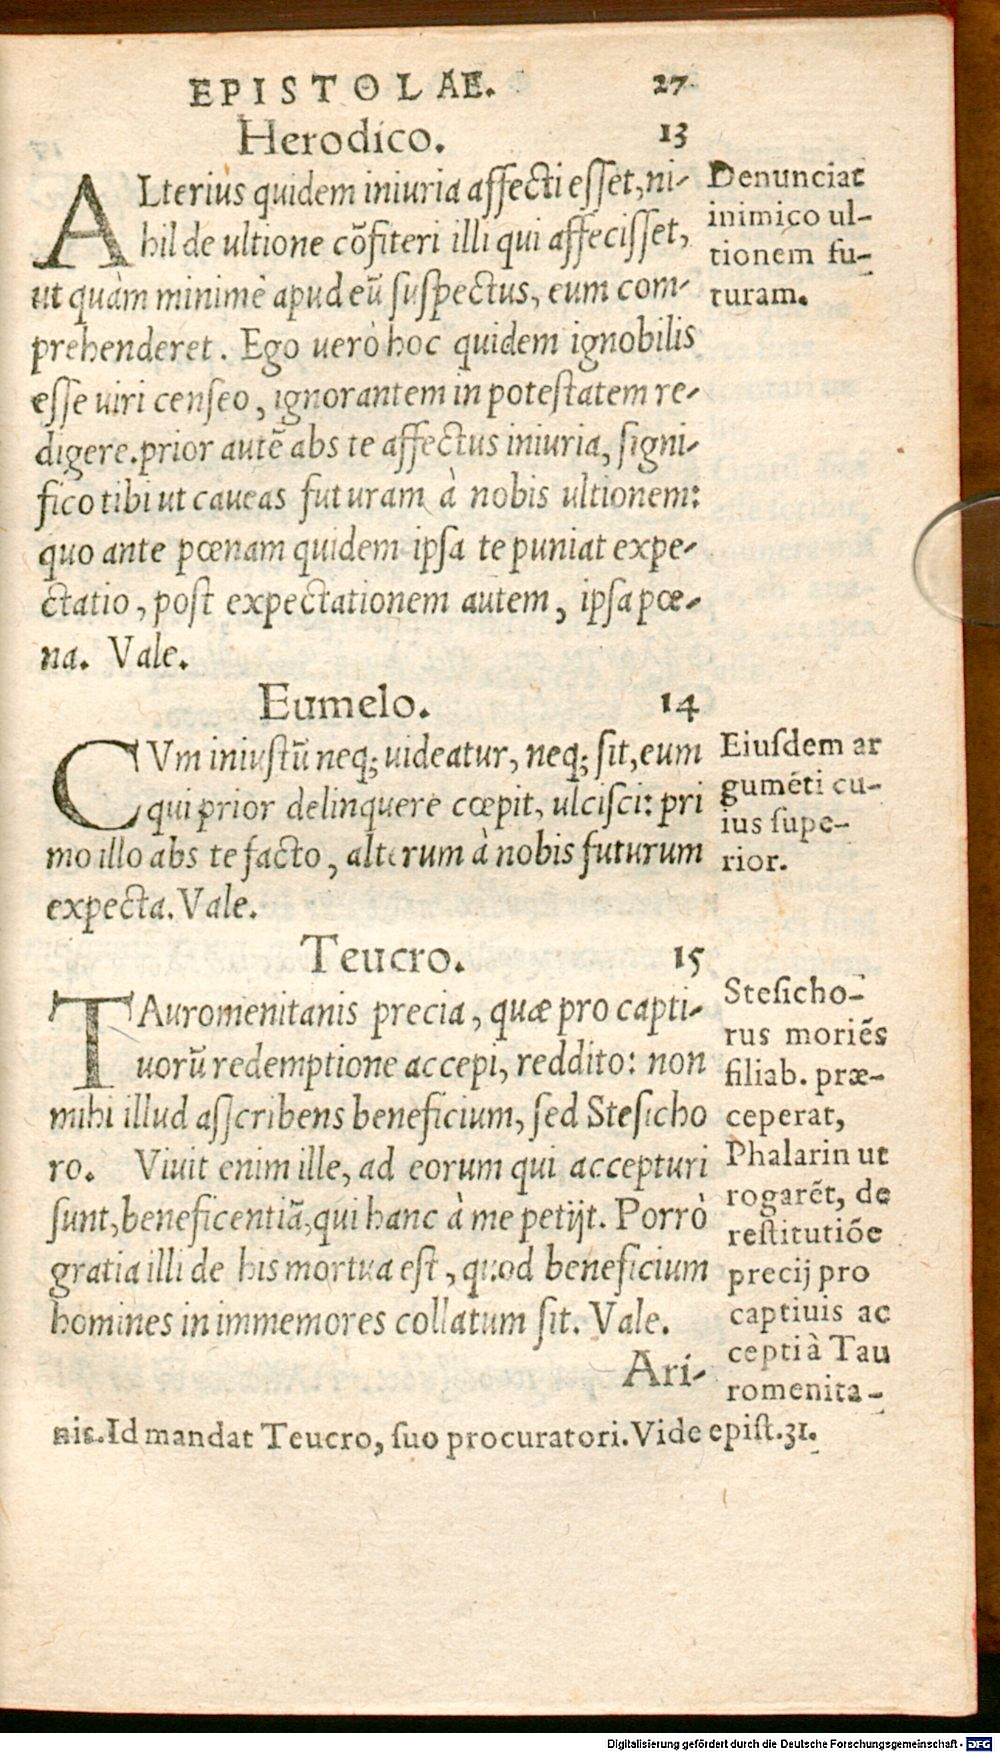 EPISTOLAE. 27
Herodico. 13
ALterius quidem iniuria affecti esset, ni-
hil de ultione cōfiteri illi qui affecisset,
ut quàm minimè apud eū suspectus, eum com-
prehenderet. Ego uerò hoc quidem ignobilis
esse uiri censeo, ignorantem in potestatem re-
digere. prior autē abs te affectus iniuria, signi-
fico tibi ut caueas futuram à nobis ultionem:
quo ante pœnam quidem ipsa te puniat expe-
ctatio, post expectationem autem, ipsa pœ-
na. Vale.
Denunciat
inimico ul-
tionem fu-
turam.
Eumelo. 14
CVm iniustū neq; uideatur, neq; sit, eum
qui prior delinquere cœpit, ulcisci: pri
mo illo abs te facto, alterum à nobis futurum
expecta. Vale.
Eiusdem ar
gumēti cu-
ius supe-
rior.
Teucro. 15
TAuromenitanis precia, quæ pro capti-
uorū redemptione accepi, reddito: non
mihi illud asscribens beneficium, sed Stesicho
ro. Viuit enim ille, ad eorum qui accepturi
sunt, beneficentiā, qui hanc à me petijt. Porrò
gratia illi de his mortua est, quod beneficium
homines in immemores collatum sit. Vale.
Ari-
Stesicho-
rus moriēs
filiab. præ-
ceperat,
Phalarin ut
rogarēt, de
restitutiōe
precij pro
captiuis ac
cepti à Tau
romenita-
nis. Id mandat Teucro, suo procuratori. Vide epist. 31.
Digitalisierung gefördert durch die Deutsche Forschungsgemeinschaft - DFG